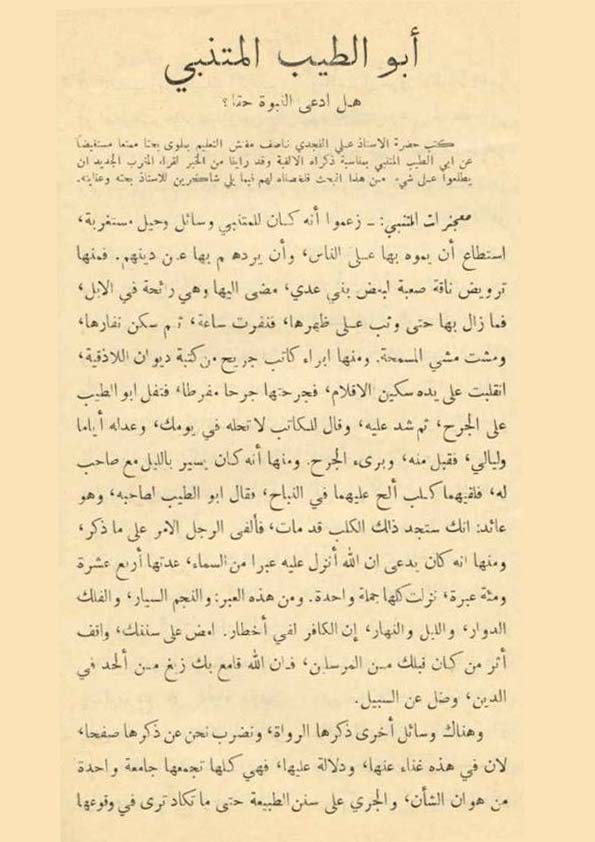 أبو الطيب المتنبي
هل ادعى النبوة حقا؟
كتب حضرة الاستاذ علي النجدي ناصف مفتش التعليم ببلوى بحثا ممتعا مستفيضا
عن ابي الطيب المتنبي بمناسبة ذكراه الالفية وقد راينا من الخير لقراء المغرب الجديد ان
يطلعوا على شيء من هذا البحث فلخصناه لهم فيما يلي شاكرين للاستاذ بحثه وعنايته.
معجزات المتنبي: ـ زعموا أنه كان للمتنبي وسائل وحيل مستغربة،
استطاع أن يموه بها على الناس، وأن يردهم بها عن دينهم. فمنها
ترويض ناقة صعبة لبعض بني عدي، مضى اليها وهي رائحة في الابل،
فما زال بها حتى وثب على ظهرها، فنفرت ساعة، ثم سكن نفارها،
ومشت مشي المسمحة. ومنها ابراء كاتب جريح من كتبة ديوان اللاذقية،
انقلبت على يده سكين الاقلام، فجرحتها جرحا مفرطا، فتفل ابو الطيب
على الجرح، ثم شد عليه، وقال للكاتب لا تحله في يومك، وعد له أياما
وليالي، فقبل منه، وبرىء الجرح. ومنها أنه كان يسير بالليل مع صاحب
له، فلقيهما كلب ألح عليهما في النباح، فقال ابو الطيب لصاحبه، وهو
عائد: انك ستجد ذلك الكلب قد مات، فألفى الرجل الامر على ما ذكر،
ومنها انه كان يدعى ان الله أنزل عليه عبرا من السماء، عدتها أربع عشرة
ومئة عبرة، نزلت كلها جملة واحدة. ومن هذه العبر: والنجم السيار، والفلك
الدوار، والليل والنهار، إن الكافر لفي أخطار. امض على سننك، واقف
أثر من كان قبلك من المرسلين، فان الله قامع بك زيغ من ألحد في
الدين، وضل عن السبيل.
وهناك وسائل أخرى ذكرها الرواة، ونضرب نحن عن ذكرها صفحا،
لان في هذه غناء عنها، ودلالة عليها، فهي كلها تجمعها جامعة واحدة
من هوان الشأن، والجري على سنن الطبيعة حتى ما تكاد ترى في وقوعها